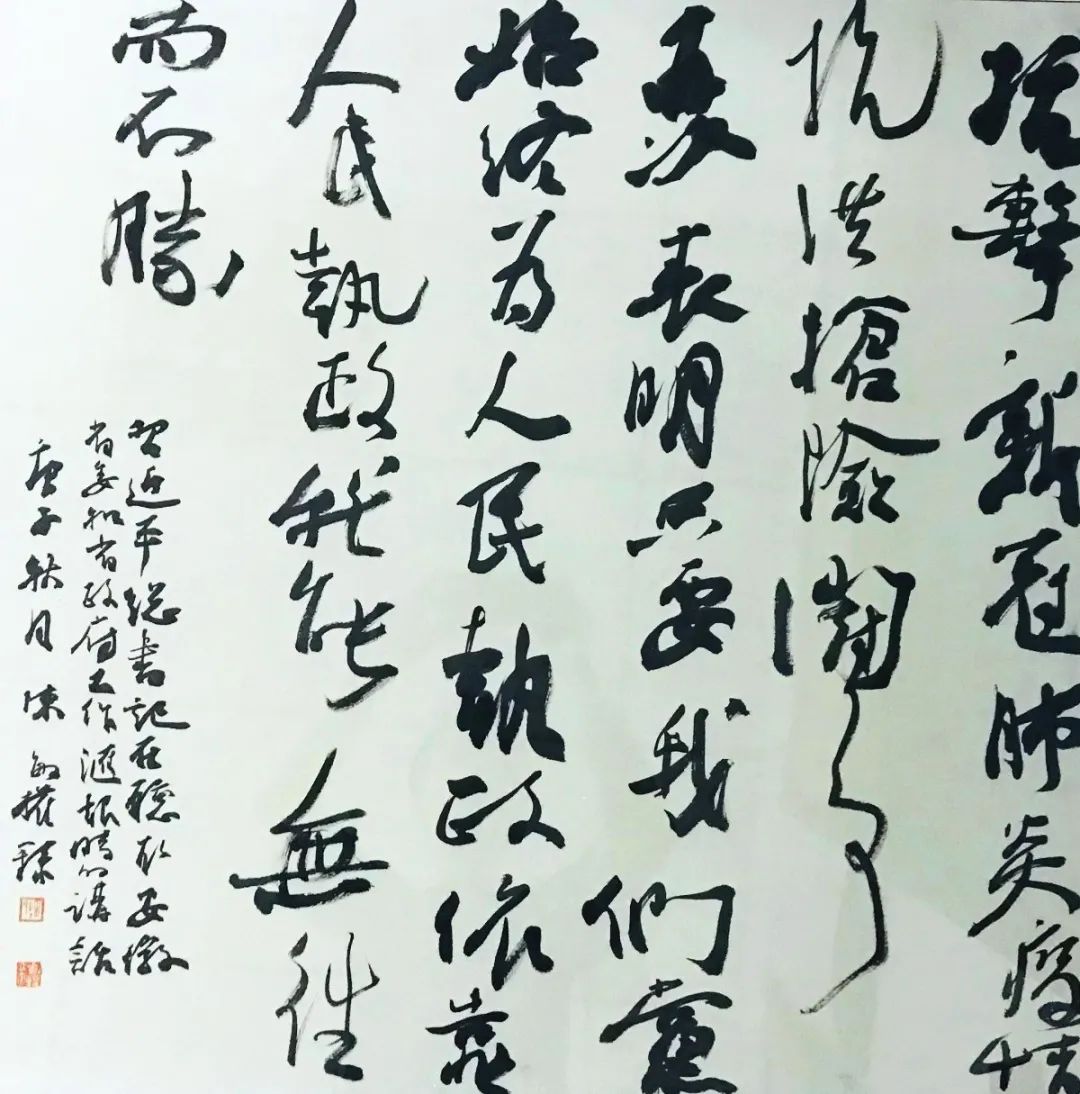 抗擊新冠肺炎疫情
抗洪搶險鬭争
再次表明只要我們黨
始終為人民執政依靠
人民執政就能無往
而不勝
習近平總書記在聽取安徽
省委和省政府工作滙報時的講話
庚子秋月陳